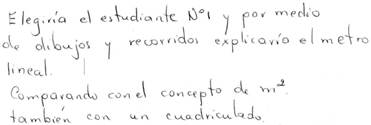 Elegiría el estudiante Nº1 y por medio
de dibujos y recorridos explicaría el metro
lineal.
Comparando con el concepto de m².
también con un cuadriculado.